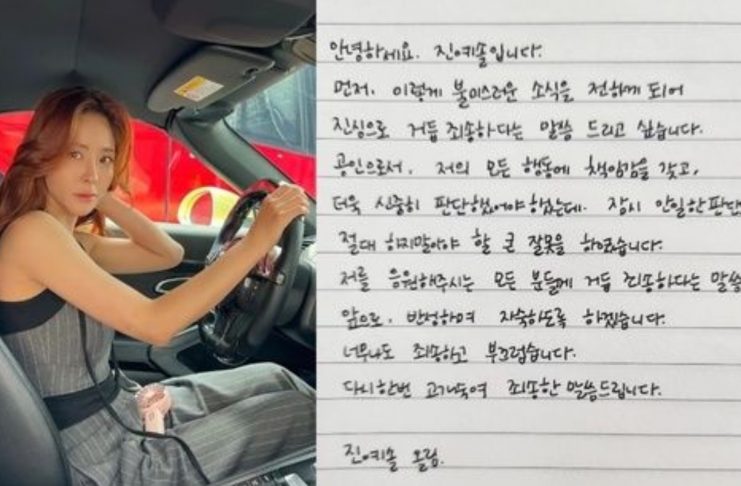 안녕하세요. 진예솔입니다.
먼저, 이렇게 불미스러운 소식을 전하게 되어
진심으로 거듭 죄송하다는 말씀 드리고 싶습니다.
공인으로서, 저의 모든 행동에 책임감을 갖고,
더욱 신중히 판단했어야 했는데. 잠시 안일한 판단
절대 하지말아야 할 큰 잘못을 하였습니다.
저를 응원해주시는 모든 분들께 거듭 죄송하다는 말씀
앞으로, 반성하며 자숙하도록 하겠습니다.
너무나도 죄송하고 부끄럽습니다.
다시한번 고개숙여 죄송한 말씀드립니다.
진예솔 올림.